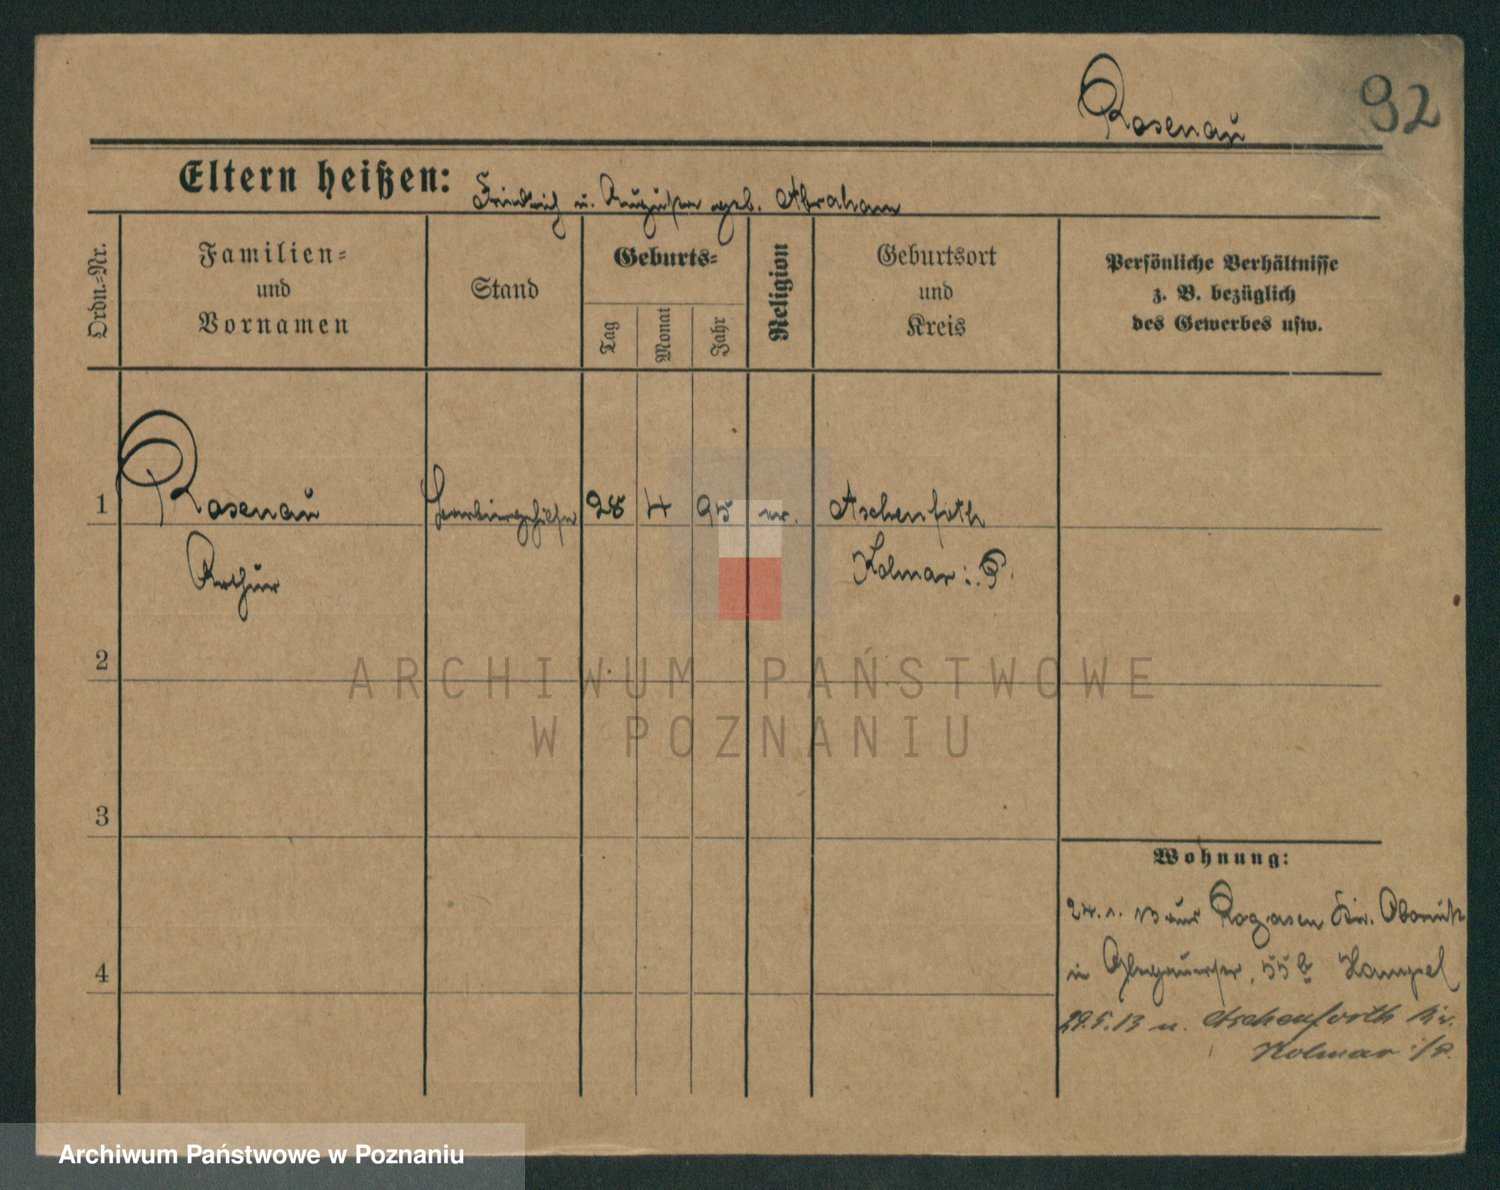 Rosenau
92
Eltern heißen: Friedrich u. Auguste geb. Abraham
Ordn.-Nr.
Familien- und Vornamen
Stand
Geburts-
Tag
Monat
Jahr
Religion
Geburtsort und Kreis
Persönliche Verhältnisse
z. B. bezüglich
des Gewerbes usw.
1 Rosenau 28 4 95 ev. Aschenforth
Arthur Kolmar i. P.
2
ARCHIWUM PAŃSTWOWE
W POZNANIU
3
Wohnung:
13 aus Rogasen Kr. Obornik
4
in 55 b Hampel
29.5.13 n. Aschenforth Kr.
Kolmar i/P.
Archiwum Państwowe w Poznaniu